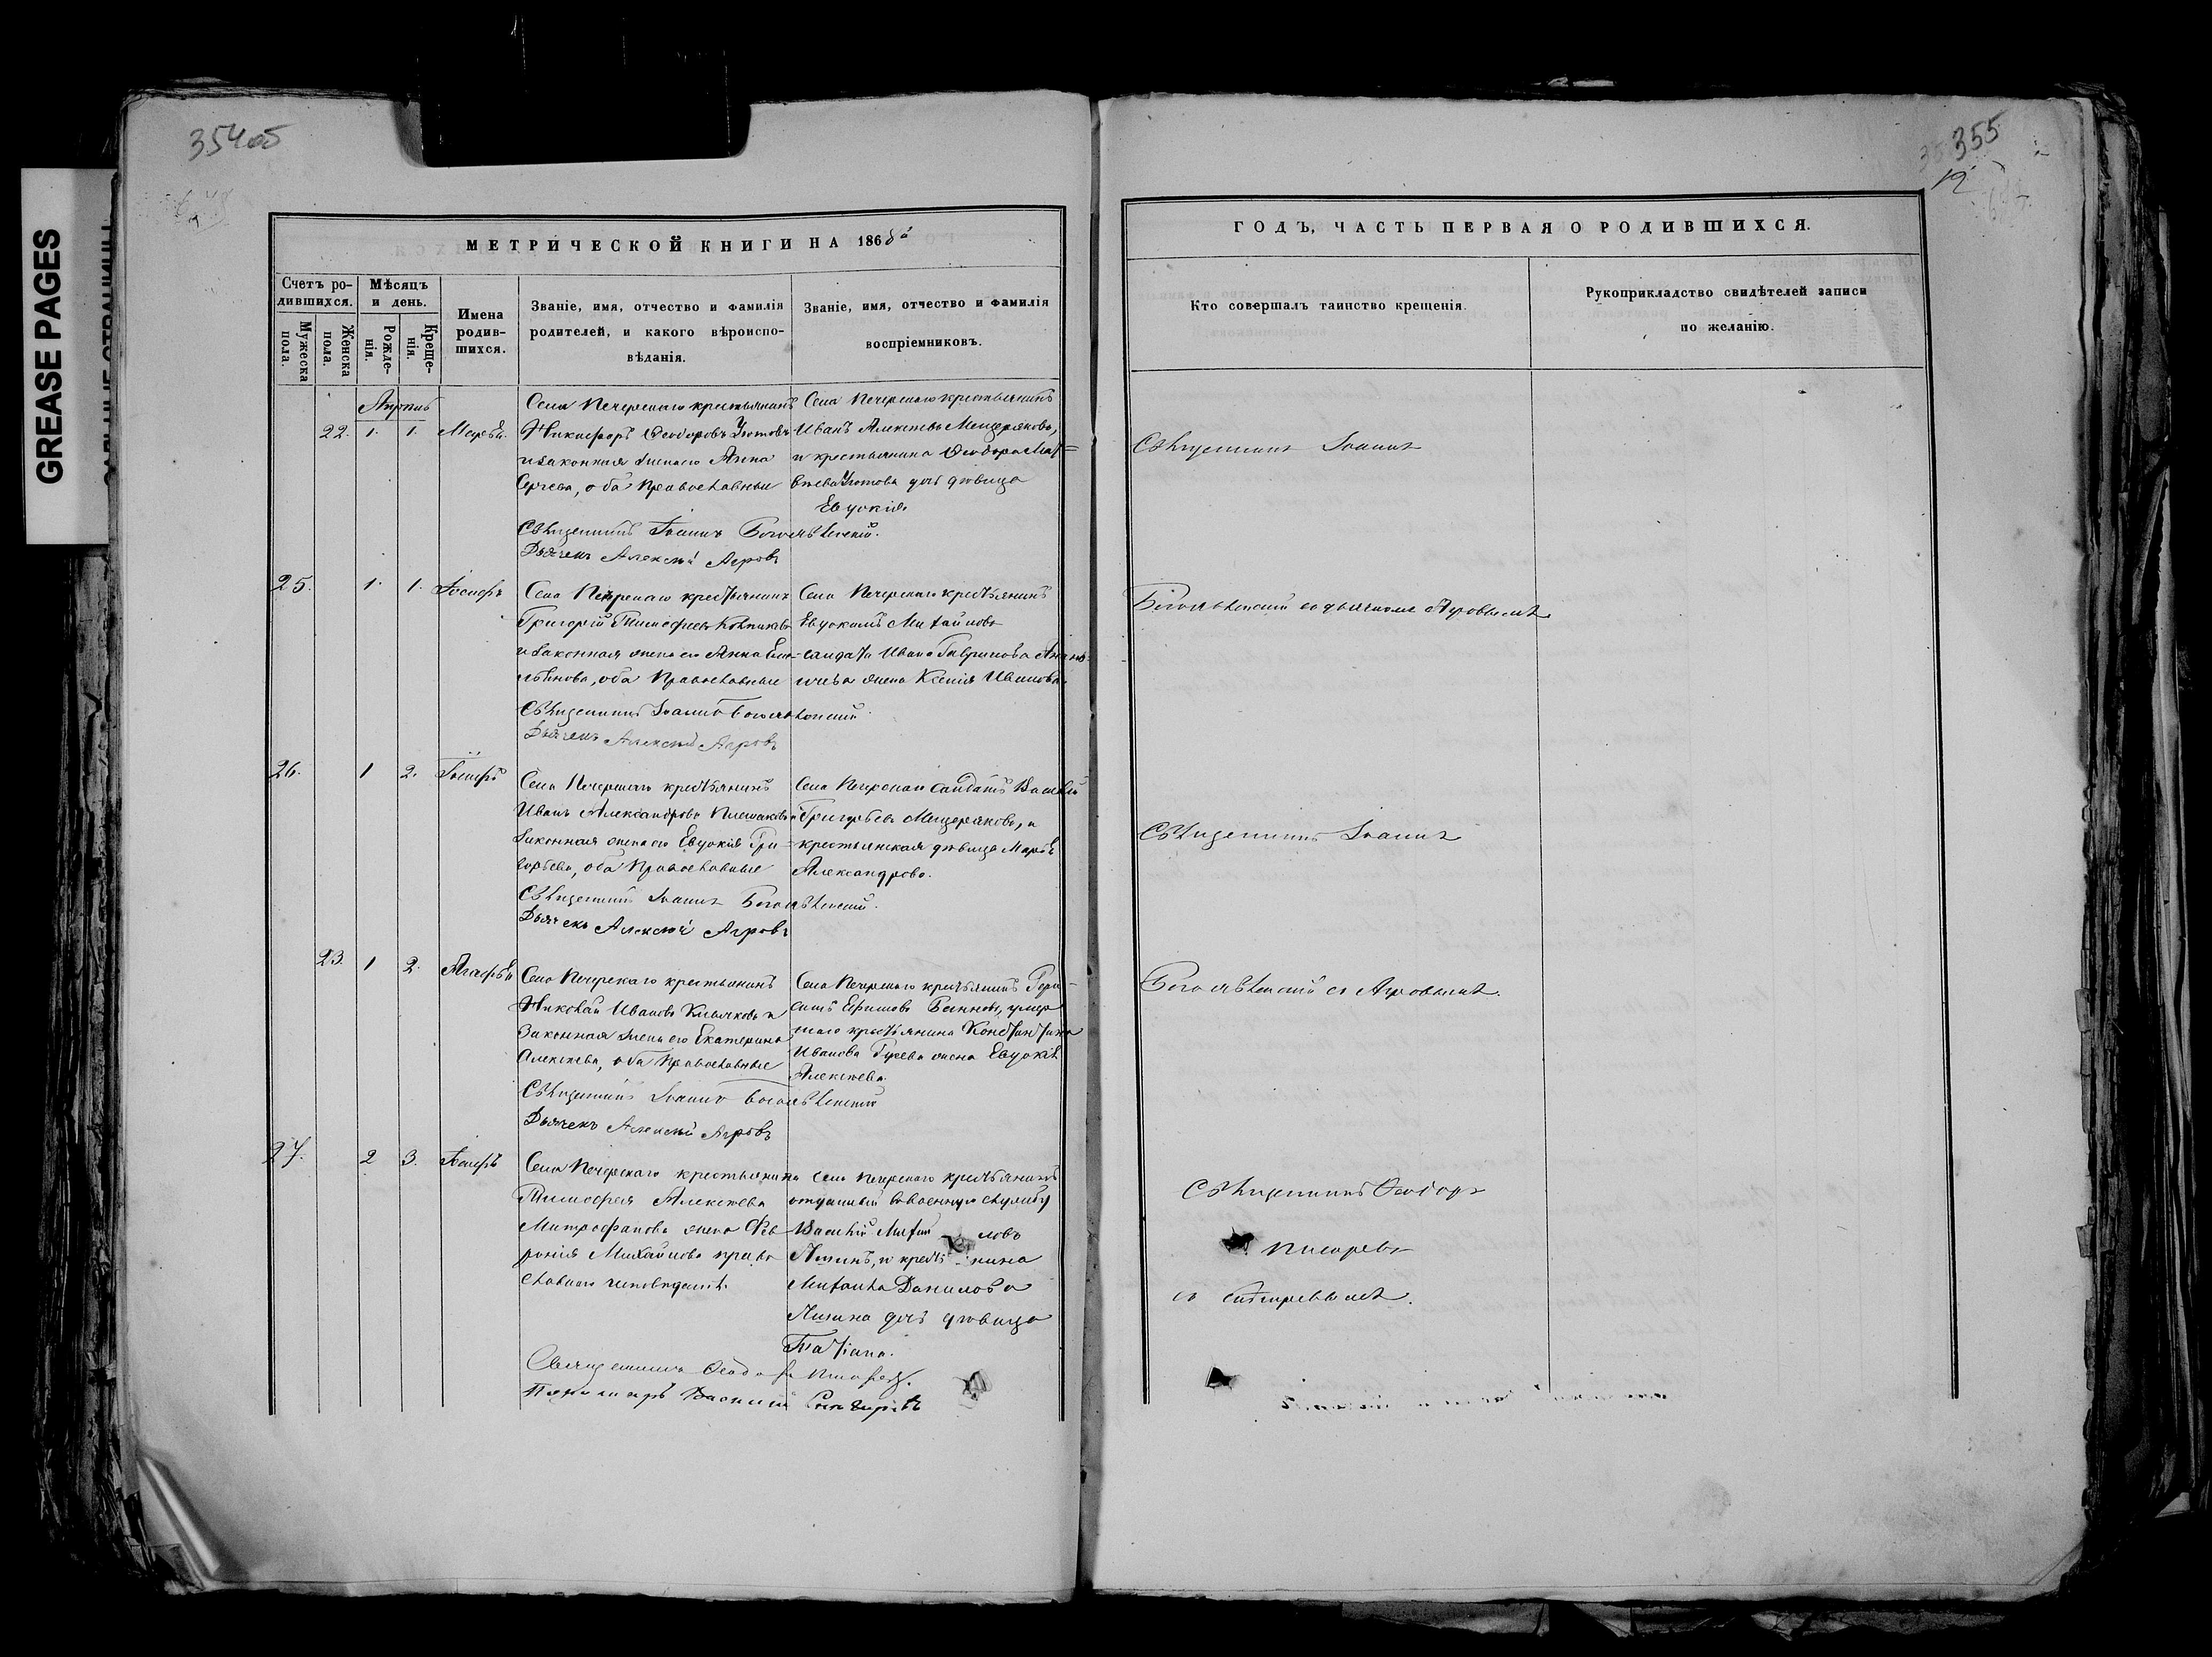 GREASE PAGES
354 об
МЕТРИЧЕСКОЙ КНИГИ НА 1868й
Счетъ ро-
дившихся.
Мужеска
пола.
Женска
пола.
Мѣсяцъ
и день.
Рожде-
нія.
Креще-
нія.
Имена
родив-
шихся.
Званіе, имя, отчество и фамилія
родителей, и какого вѣроиспо-
вѣданія.
Званіе, имя, отчество и фамилія
воспріемниковъ.
Апрѣль
22. 1. 1. Марѳа.
Села Печерскаго крестьянинъ
Никифоръ Ѳеодоровъ
и законная жена его Анна
Сергеева, оба Православные
Села Печерскаго крестьянинъ
Иванъ Алексѣевъ Мещеряковъ,
и крестьянина Ѳеодора Мат=
вѣева дочь дѣвица
Евдокія.
Священникъ Іоаннъ Богоявленскій.
Дьячекъ Алексѣй Агровъ
25. 1. 1. Іосифъ
Села Печерскаго крестьянинъ
Григорій Тимофеевъ
и законная жена его Анна Еме-
льянова, оба Православные
Села Печерскаго крестьянинъ
Евдокимъ Михайловъ
салдата Ивана Гаврилова
жена Ксенія Иванова.
Священникъ Іоаннъ Богоявленскій
Дьячекъ Алексѣй Агровъ
26. 1 2. Іосифъ
Села Печерскаго крестьянинъ
Иванъ Александровъ Плешаковъ и
Законная жена его Евдокія Гри-
горьева, оба Православные
Села Печерскаго салдатъ Василій
Григорьевъ Мещеряковъ, и
крестьянская дѣвица Марѳа
Александрова.
Священникъ Іоаннъ Богоявленскій.
Дьячекъ Алексѣй Агровъ
23. 1 2. Агафья
Села Печерскаго крестьянинъ
Николай Ивановъ Клычковъ и
Законная жена его Екатерина
Алексѣева, оба Православные
Села Печерскаго крестьянинъ Гера-
симъ Ефимовъ умер
шаго крестьянина Константина
Иванова Гусева жена Евдокія
Алексѣева.
Священникъ Іоаннъ Богоявленскій
Дьячекъ Алексѣй Агровъ
27. 2 3. Іосифъ
Села Печерскаго крестьянина
Тимофея Алексѣева
Митрофанова жена Фев
ронія Михайлова право
славнаго исповѣданія.
Села Печерскаго крестьянинъ
отданный въ военную службу
Василій Михай ловъ
и крестьянина
Михаила Данилова
дочь дѣвица
Татіана.
Священникъ Ѳеодоръ Писаревъ.
Пономарь Василій
355
12
ГОДЪ, ЧАСТЬ ПЕРВАЯ О РОДИВШИХСЯ.
Кто совершалъ таинство крещенія.
Рукоприкладство свидѣтелей записи
по желанію.
Священникъ Іоаннъ
Богоявленскій съ дьячкомъ Агровымъ
Священникъ Іоаннъ
Богоявленскій съ Агровымъ.
Священникъ Ѳеодоръ
Писаревъ